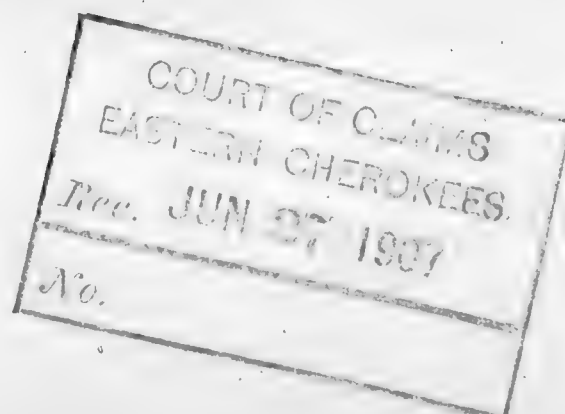 COURT OF CLAIMS
EASTERN CHEROKEES.
Rec. JUN 27 1907
No.